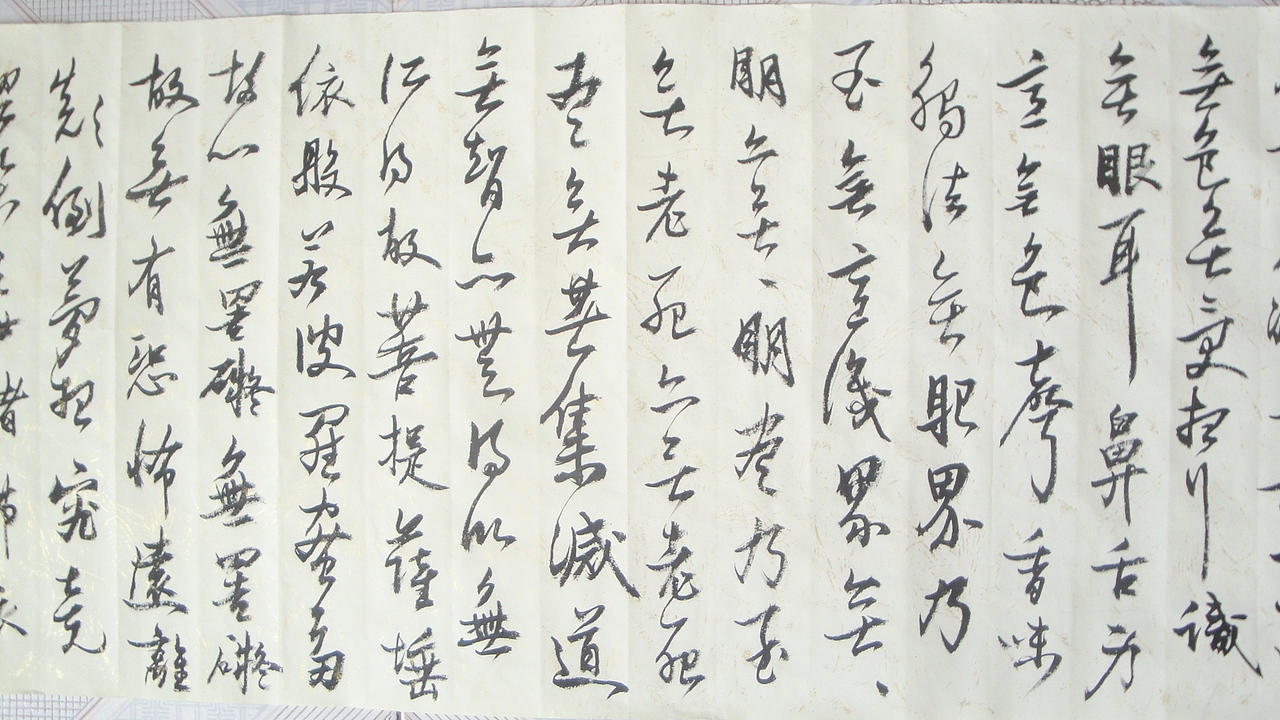 無色無受想行識
無眼耳鼻舌身
意無色聲香味
觸法無眼界乃
至無意識界無、
明亦無、明盡乃至
無老死亦無老死
盡無苦集滅道
無智亦無得以無
所得故菩提薩埵
依般若波羅蜜多
故心無罣礙無罣礙
故無有恐怖遠離
顛倒夢想究竟